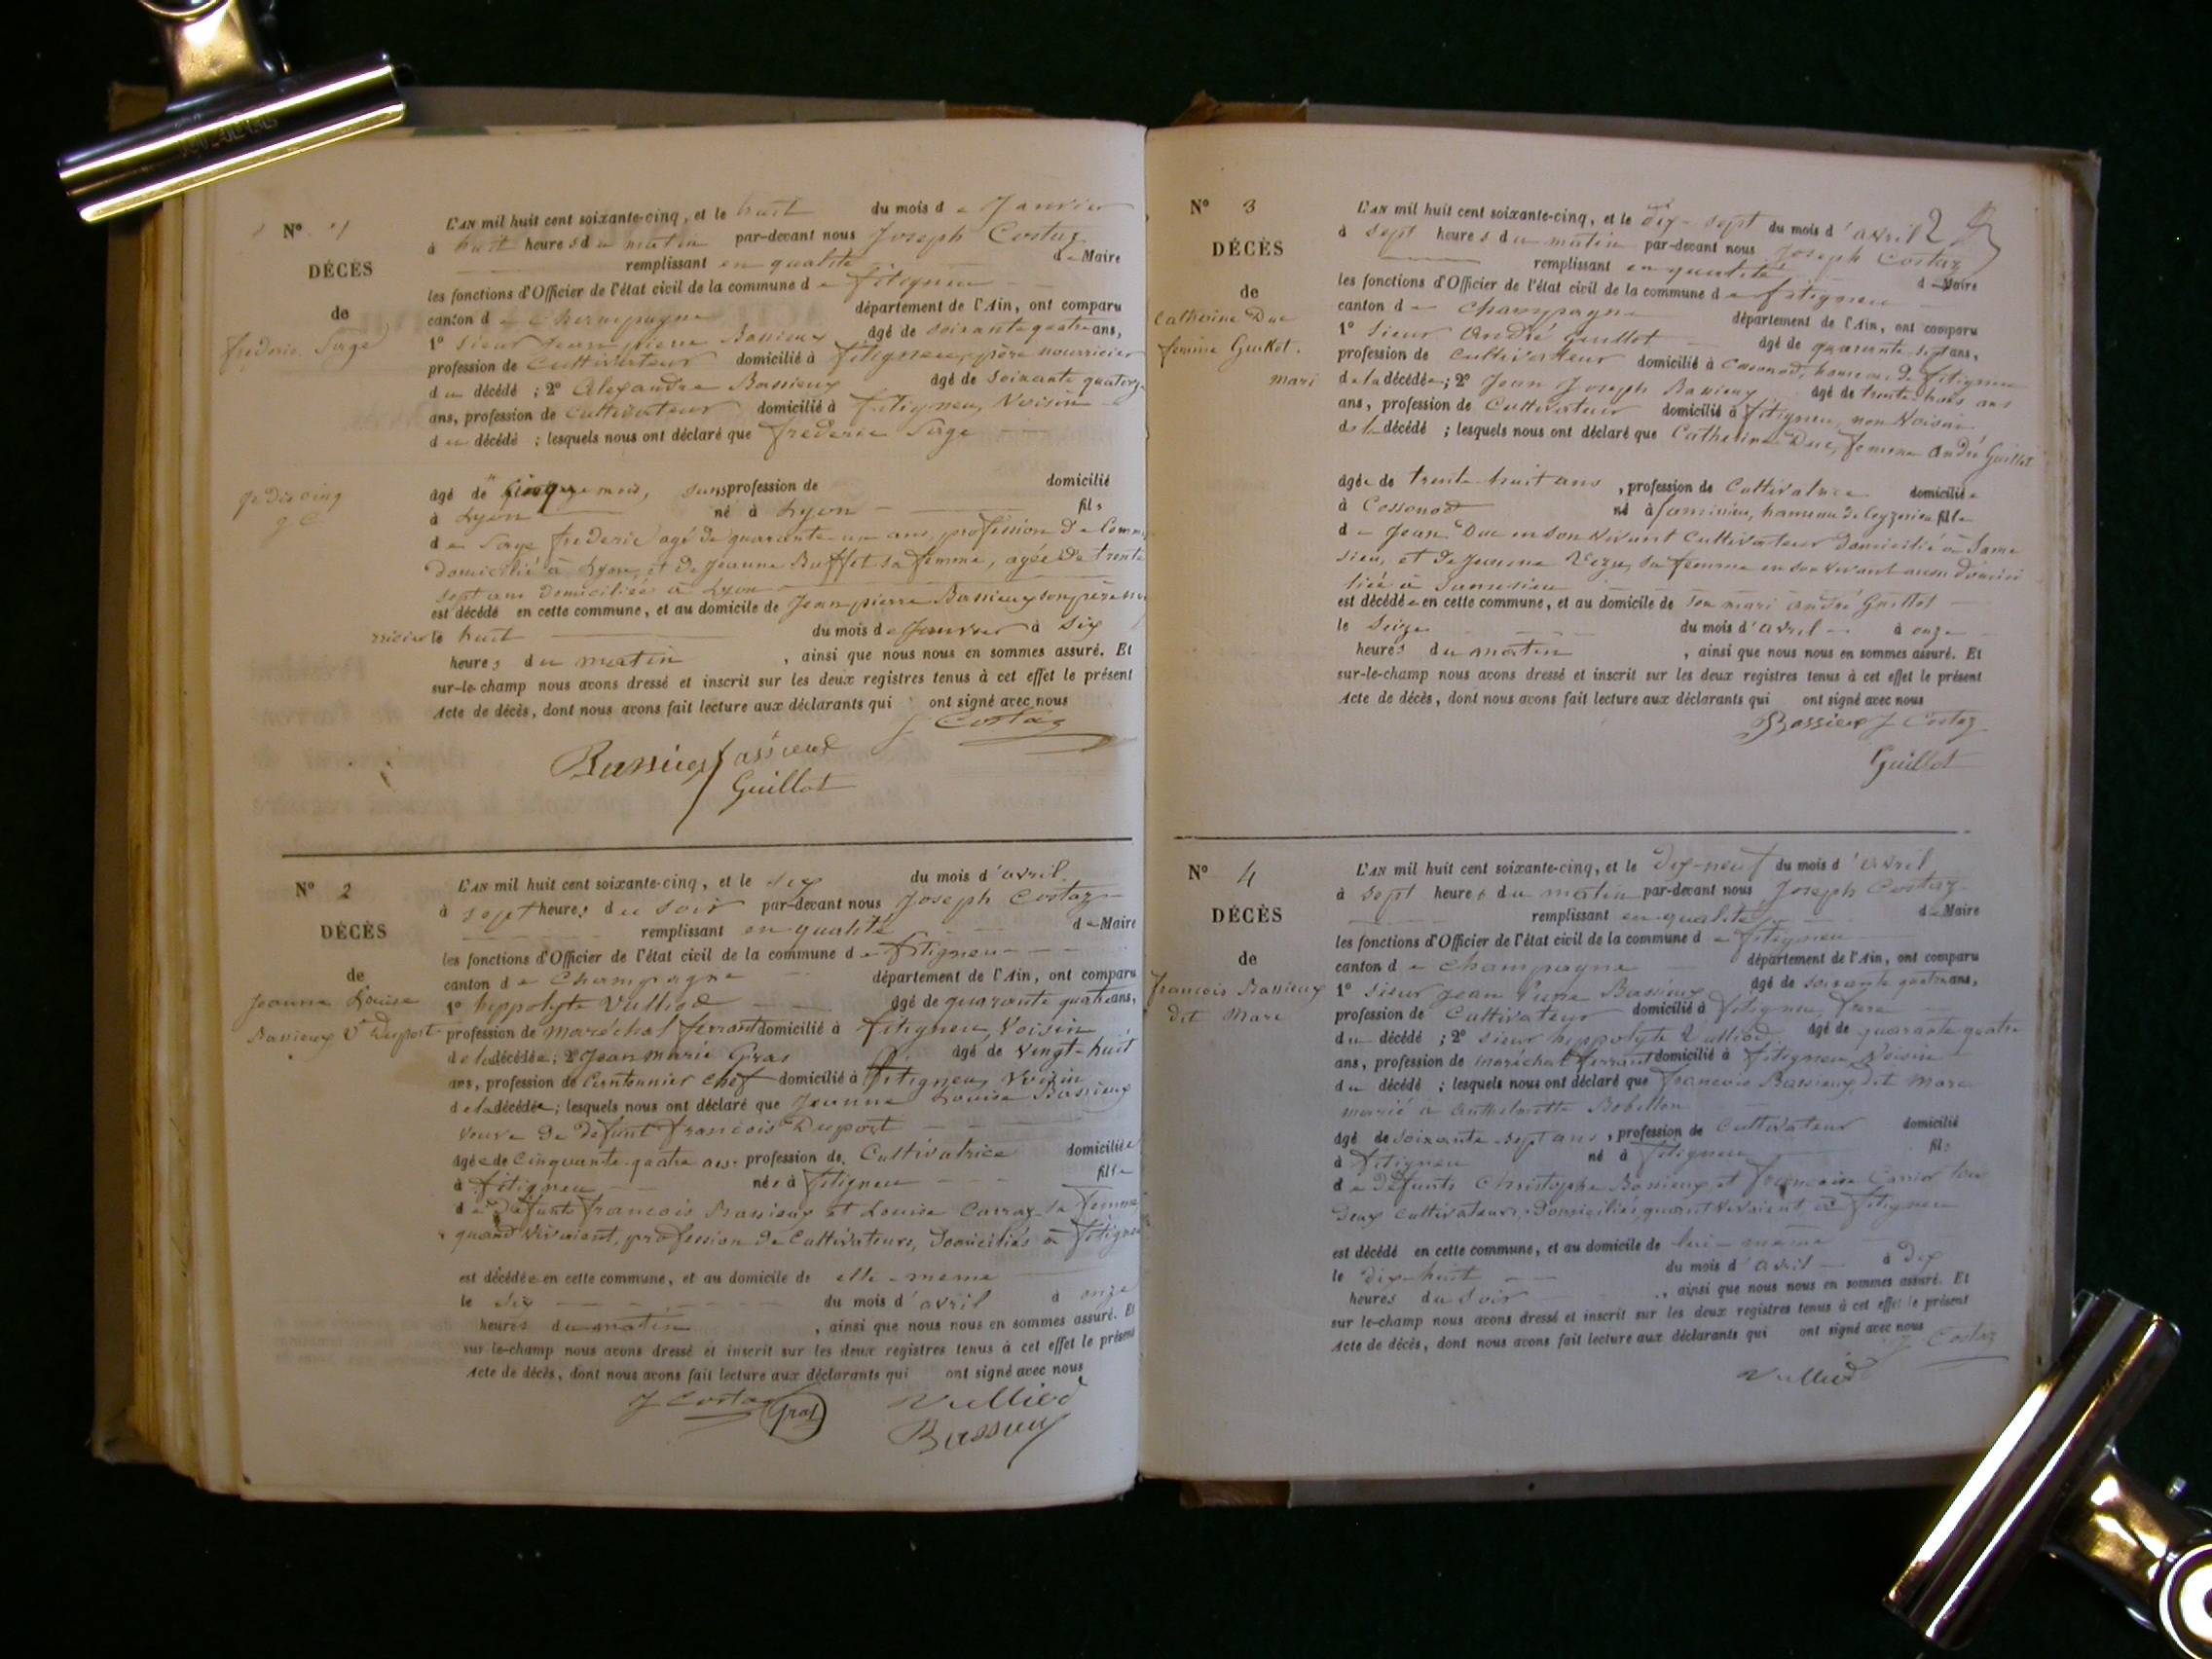 N° 1
DÉCÈS
de
frederic Serge
L'AN mil huit cent soixante-cinq, et le huit du mois de Janvier
à huit heures du matin par-devant nous Joseph Costaz
remplissant en qualité de Maire
les fonctions d'Officier de l'état civil de la commune de fitigneu
canton de Champagne département de l'Ain, ont comparu
1° Sieur Jean pierre Bassieux âgé de soixante quatre ans,
profession de Cultivateur domicilié à fitigneu, père nourricier
du décédé ; 2° Alexandre Bassieux âgé de soixante quatorze
ans, profession de cultivateur domicilié à fitigneu, Voisin
du décédé ; lesquels nous ont déclaré que frederic Serge
âgé de mois, sans profession de domicilié
à Lyon né à Lyon fils
de Serge frederic agé de quarante un ans, profession de
domicilié à Lyon, et de Jeanne Buffet sa femme, agée de trente
sept ans domiciliée à Lyon
est décédé en cette commune, et au domicile de Jean pierre Bassieux son père
rricier le huit du mois de Janvier à six
heures du matin , ainsi que nous nous en sommes assuré. Et
sur-le-champ nous avons dressé et inscrit sur les deux registres tenus à cet effet le présent
Acte de décès, dont nous avons fait lecture aux déclarants qui ont signé avec nous
J Costaz
Bassieux
Guillot
N° 2
DÉCÈS
de
Jeanne Louise
Bassieux Ve Duport
L'AN mil huit cent soixante-cinq, et le six du mois d'avril
à sept heures du soir par-devant nous Joseph Costaz
remplissant en qualité de Maire
les fonctions d'Officier de l'état civil de la commune de fitigneu
canton de Champagne département de l'Ain, ont comparu
1° hippolyte Vulliod âgé de quarante quatre ans,
profession de maréchal ferrant domicilié à fitigneu, Voisin
de la décédée ; 2° Jean marie Gras âgé de vingt-huit
ans, profession de Cantonnier chef domicilié à fitigneu, Voisin
de la décédée ; lesquels nous ont déclaré que Jeanne Louise Bassieux
veuve de défunt françois Duport
âgée de cinquante quatre ans profession de Cultivatrice domiciliée
à fitigneu née à fitigneu fille
de défunts françois Bassieux et Louise Carraz sa femme
quand vivaient, profession de Cultivateurs, domiciliés à fitigneu
est décédée en cette commune, et au domicile de elle-meme
le six du mois d'avril à onze
heures du matin , ainsi que nous nous en sommes assuré. Et
sur-le-champ nous avons dressé et inscrit sur les deux registres tenus à cet effet le présent
Acte de décès, dont nous avons fait lecture aux déclarants qui ont signé avec nous
J Costaz Gras Vulliod
Bassieux
N° 3
DÉCÈS
de
Catherine Duc
femme Guillot.
mari
L'AN mil huit cent soixante-cinq, et le dix-sept du mois d'avril 2
à sept heures du matin par-devant nous Joseph Costaz
remplissant en qualité de Maire
les fonctions d'Officier de l'état civil de la commune de fitigneu
canton de Champagne département de l'Ain, ont comparu
1° Sieur André Guillot âgé de quarante sept ans,
profession de Cultivateur domicilié à Cossonod, hameau de fitigneu
de la décédée ; 2° Jean Joseph Bassieux âgé de trente trois ans
ans, profession de Cultivateur domicilié à fitigneu, non Voisin
de la décédé ; lesquels nous ont déclaré que Catherine Duc, femme André Guillot
âgée de trente huit ans , profession de Cultivatrice domiciliée
à Cossonod né à hameau de fille
de Jean Duc en son vivant Cultivateur domicilié à Same
sieu, et de Jeanne sa femme en son vivant aussi domici
liée à Samesieu
est décédée en cette commune, et au domicile de son mari André Guillot
le seize du mois d'avril à onze
heures du matin , ainsi que nous nous en sommes assuré. Et
sur-le-champ nous avons dressé et inscrit sur les deux registres tenus à cet effet le présent
Acte de décès, dont nous avons fait lecture aux déclarants qui ont signé avec nous
Bassieux J Costaz
Guillot
N° 4
DÉCÈS
de
francois Bassieux
dit Marc
L'AN mil huit cent soixante-cinq, et le dix-neuf du mois d'avril
à sept heures du matin par-devant nous Joseph Costaz
remplissant en qualité de Maire
les fonctions d'Officier de l'état civil de la commune de fitigneu
canton de Champagne département de l'Ain, ont comparu
1° Sieur Jean Pierre Bassieux âgé de soixante quatre ans,
profession de Cultivateur domicilié à fitigneu, frere
du décédé ; 2° Sieur hippolyte Vulliod âgé de quarante quatre
ans, profession de maréchal ferrant domicilié à fitigneu, Voisin
du décédé ; lesquels nous ont déclaré que francois Bassieux, dit Marc
marié à Anthelmette Robellon
âgé de soixante-sept ans , profession de Cultivateur domicilié
à fitigneu né à fitigneu fils
de défunts Christophe Bassieux et francoise tous
deux cultivateurs, domiciliés, quand vivaient, à fitigneu
est décédé en cette commune, et au domicile de lui-même
le dix-huit du mois d'avril à dix
heures du soir , ainsi que nous nous en sommes assuré. Et
sur-le-champ nous avons dressé et inscrit sur les deux registres tenus à cet effet le présent
Acte de décès, dont nous avons fait lecture aux déclarants qui ont signé avec nous
J Costaz
Vulliod